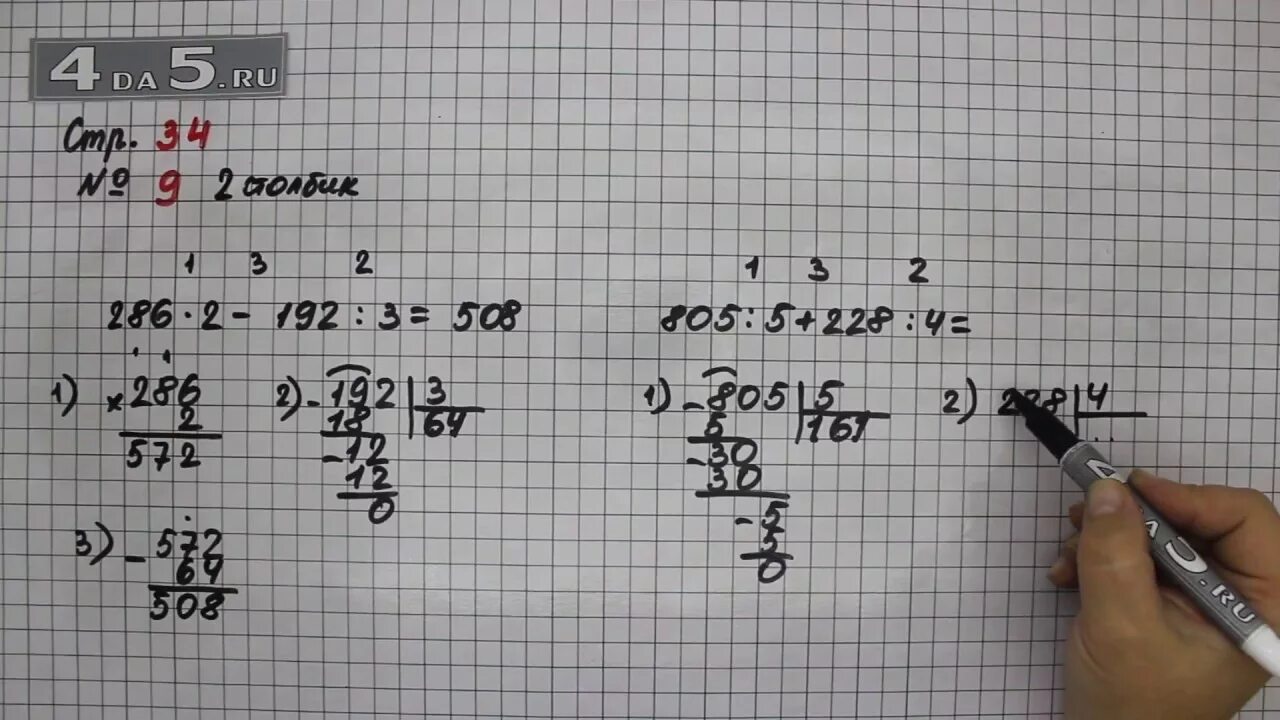 4 DA 5.RU
Стр. 34
№ 9 2 столбик
1 3 2
286 · 2 - 192 : 3 = 508
1) × 286
2
572
2) - 192 | 3
18 64
- 12
12
0
3) - 572
64
508
1 3 2
805 : 5 + 228 : 4 =
1) - 805 | 5
5 161
- 30
30
- 5
5
0
2) 228 | 4
. .
4 DA 5.RU